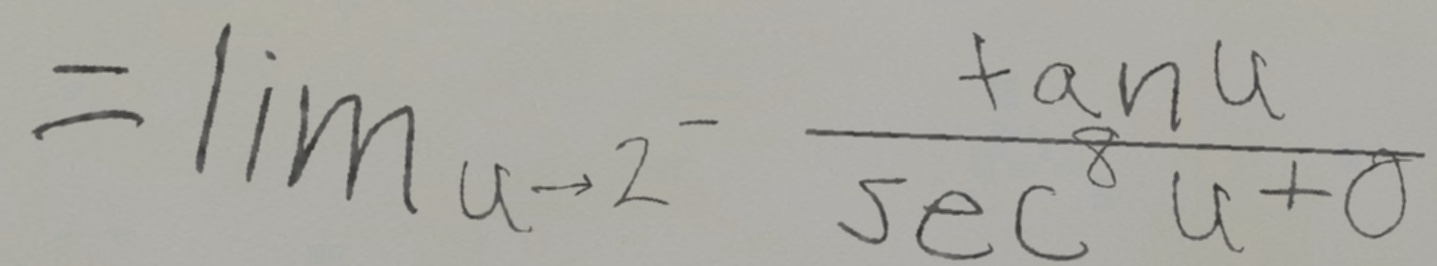 = lim_{u→2^-} \frac{tan u}{sec^8 u+0}